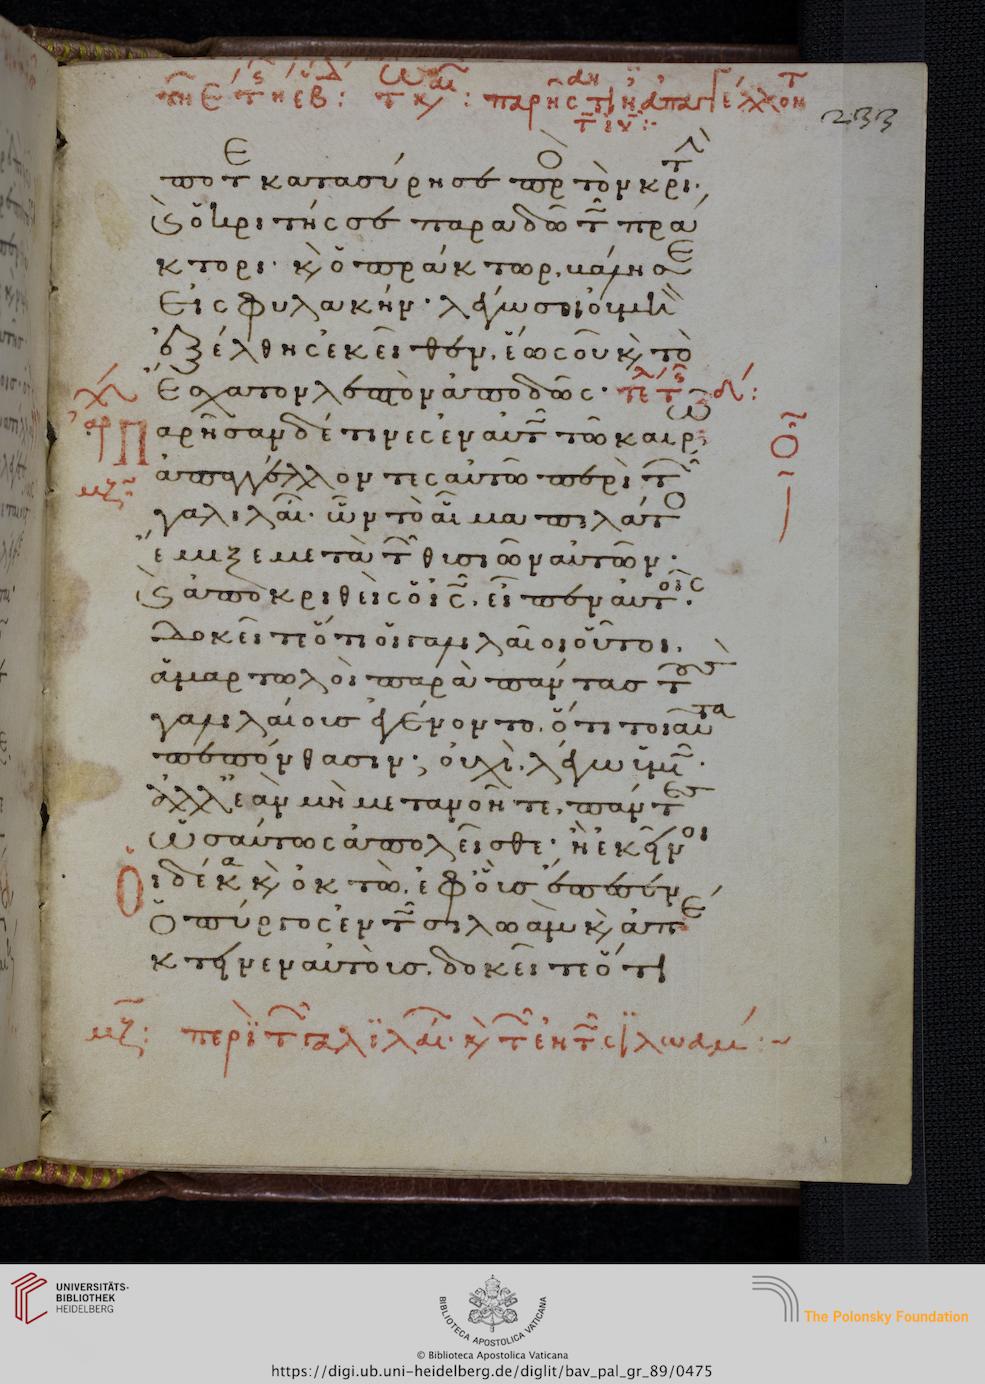 233
ποτε κατασύρη σε πρὸς τὸν κριτὴν·
καὶ ὁ κριτής σε παραδῶ τῶ πρά
κτορι· καὶ ὁ πράκτωρ, βάλη σε
εἰς φυλακήν· λέγω σοι οὐ μὴ
ἐξέλθης ἐκεῖθεν, ἕως οὗ καὶ τὸ
ἔσχατον λεπτὸν ἀποδῶς·
Παρῆσαν δέ τινες ἐν αὐτῶ τῶ καιρῶ
ἀπαγγέλλοντες αὐτῶ περὶ τῶν
γαλιλαίων· ὧν τὸ αἷμα πιλάτος
ἔμιξε μετὰ τῶν θυσιῶν αὐτῶν·
καὶ ἀποκριθεὶς ὁ ις, εἶπεν αὐτοῖς·
δοκεῖτε ὅτι οἱ γαλιλαῖοι οὗτοι,
ἁμαρτωλοὶ παρὰ πάντας τοὺς
γαλιλαίους ἐγένοντο, ὅτι τοιαῦτα
πεπόνθασιν; οὐχὶ, λέγω ὑμῖν·
ἀλλ' ἐὰν μὴ μετανοῆτε, πάντες
ὡσαύτως ἀπολεῖσθε· ἢ ἐκεῖνοι
οἱ δέκα καὶ ὀκτὼ, ἐφ' οὓς ἔπεσεν
ὁ πύργος ἐν τῶ σιλωὰμ καὶ ἀπέ
κτεινεν αὐτοὺς, δοκεῖτε ὅτι
μζ: περὶ τῶν γαλιλαίων· καὶ τῶν ἐν τῶ σιλωάμ:~
UNIVERSITÄTS-
BIBLIOTHEK
HEIDELBERG
BIBLIOTECA APOSTOLICA VATICANA
The Polonsky Foundation
© Biblioteca Apostolica Vaticana
https://digi.ub.uni-heidelberg.de/diglit/bav_pal_gr_89/0475